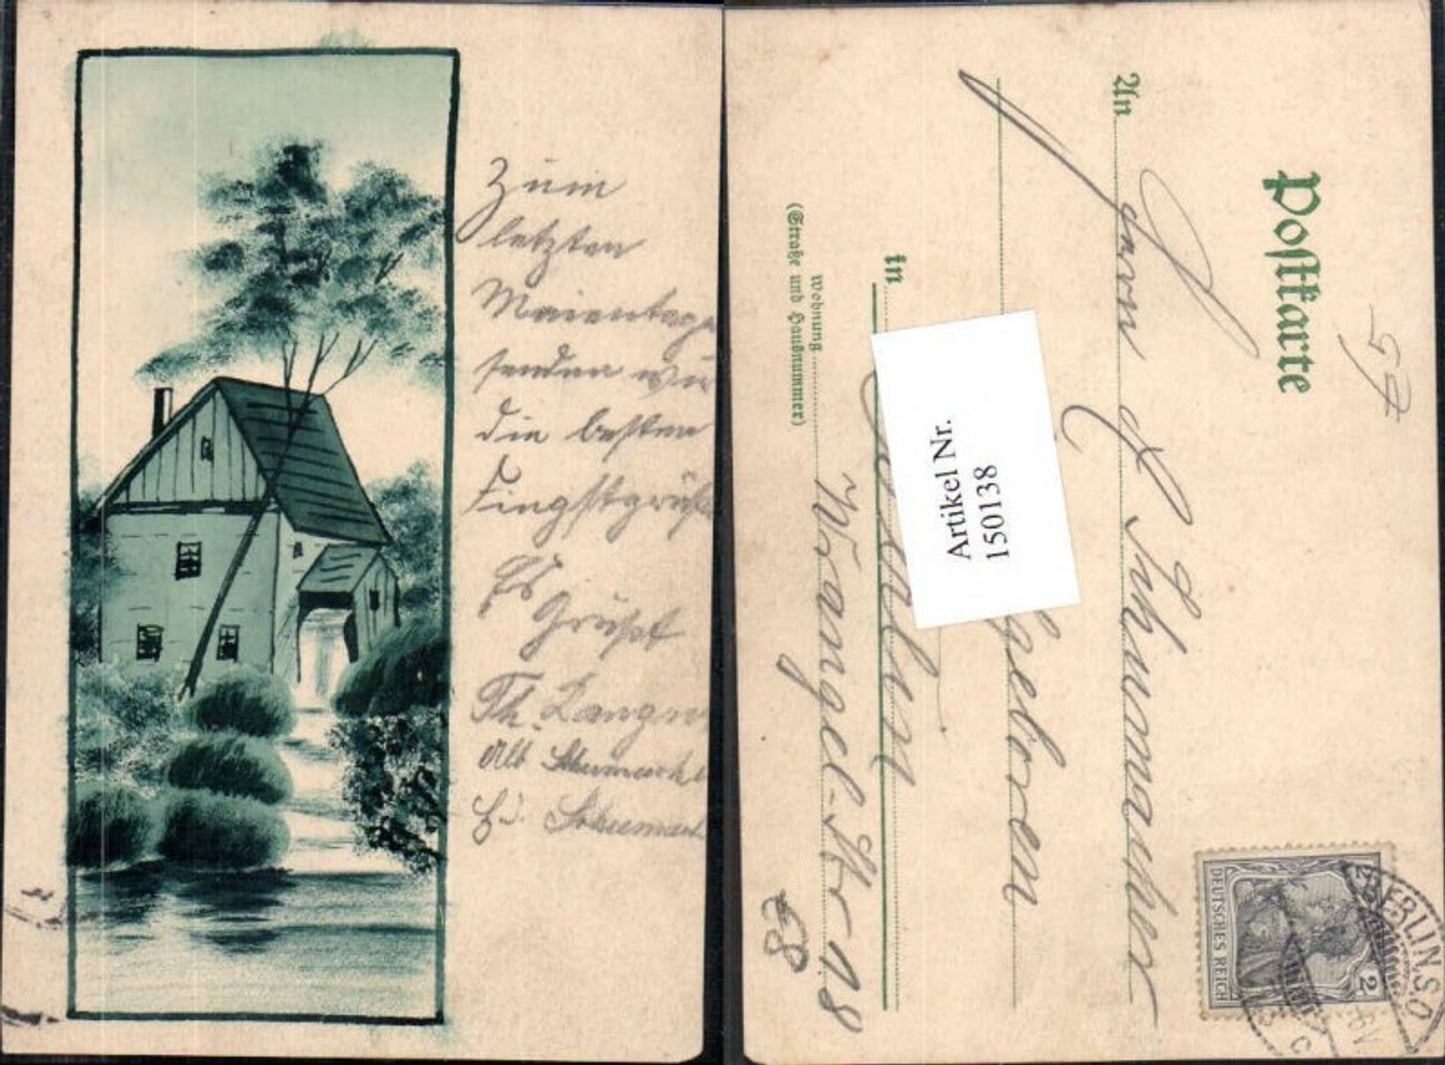 Zum
letzten
Maientage
senden wir
die besten
Fingstgrüße
Es
Grüßt
Th. Langne
Alb Schumach
Schumach
Postkarte
57
An
Herrn
Schumacher
Geboren
in
Berlin
Wohnung
(Straße und Hausnummer)
Wrangel-Str 18
83
Artikel Nr.
150138
DEUTSCHES REICH
2
BERLIN.S.O.